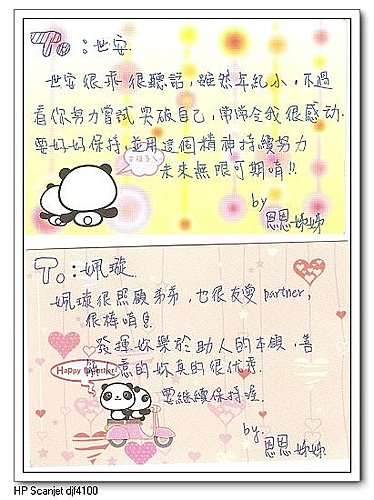 To：世安
世安很乖很聽話，雖然年紀小，不過
看你努力嘗試突破自己，常常令我很感动.
要好好保持，並用這個精神持續努力
未來無限可期唷!!
by
恩恩姊姊
To：姵璇
姵璇很照顧弟弟，也很友愛partner，
很棒唷!
發揮妳樂於助人的本領，善
意的妳真的很优秀.
Happy Together!
要繼續保持喔.
by.
恩恩姊姊
HP Scanjet djf4100